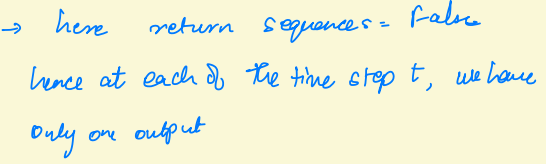 → here return sequences = False
hence at each of the time step t, we have
only one output